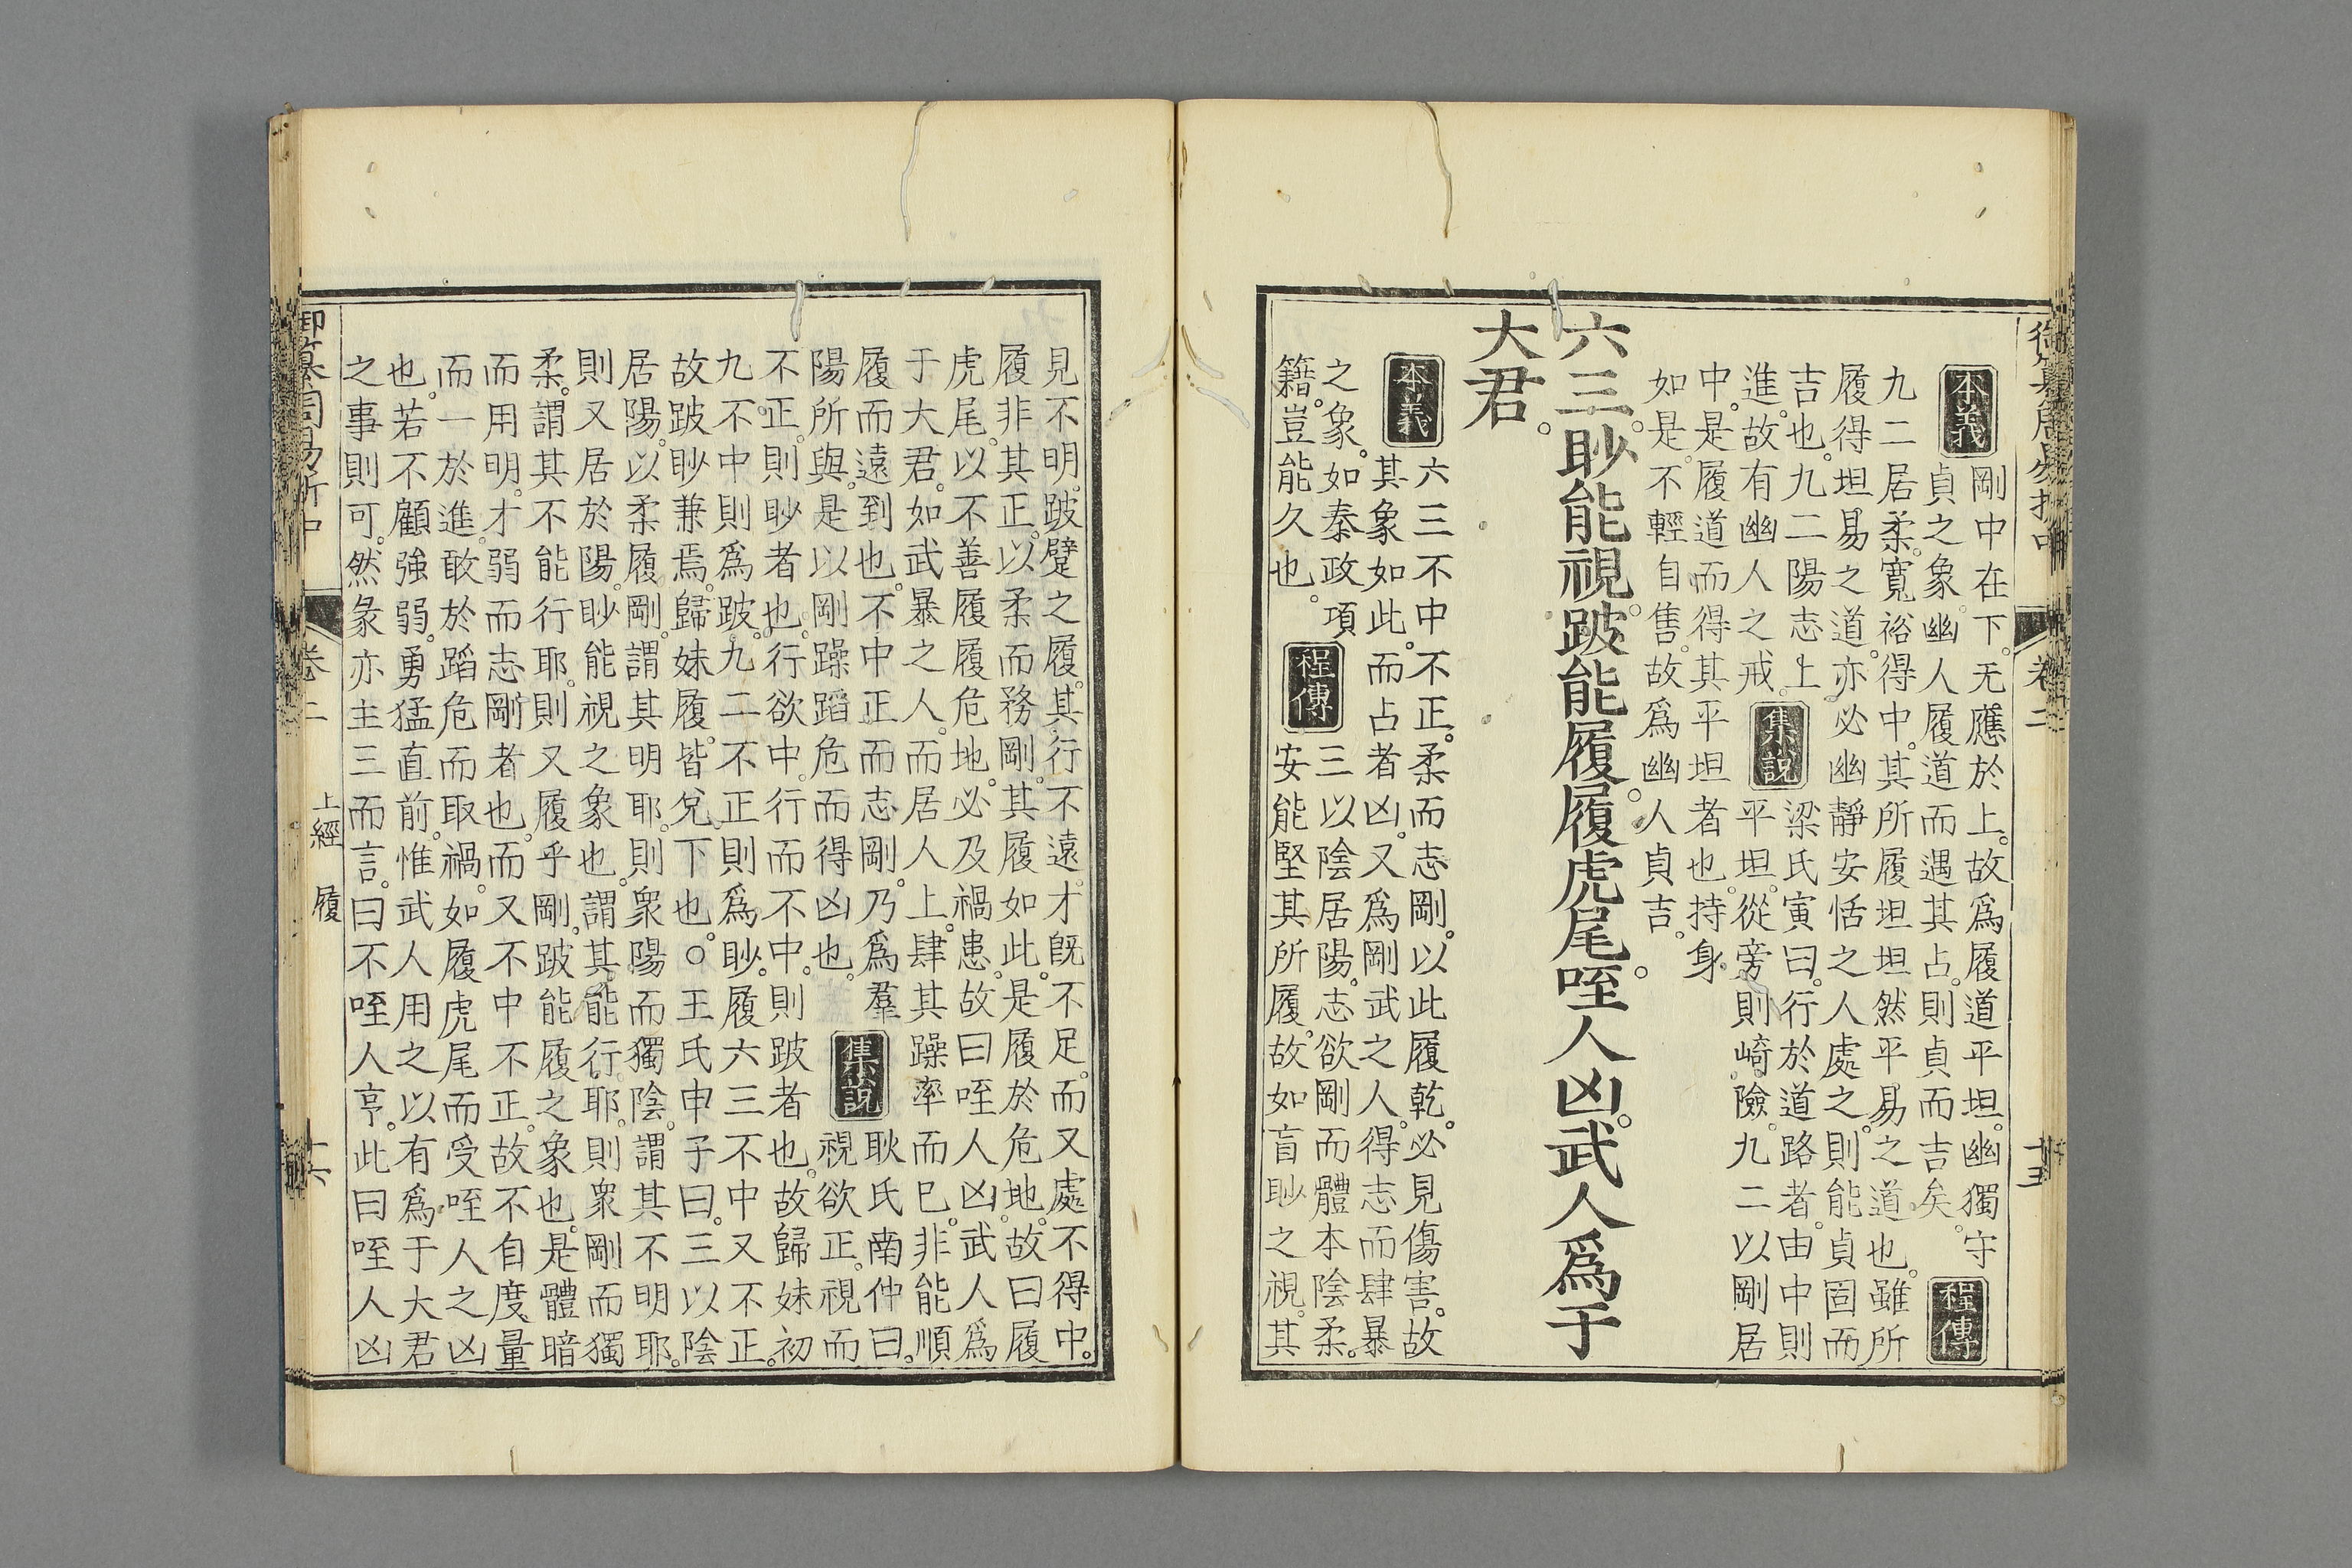 御纂周易折中 卷二 十五
本義
剛中在下。无應於上。故爲履道平坦。幽獨守
貞之象。幽人履道而遇其占。則貞而吉矣。
程傳
九二居柔。寬裕得中。其所履坦坦然平易之道也。雖所
履得坦易之道。亦必幽靜安恬之人處之。則能貞固而
吉也。九二陽志上
進。故有幽人之戒。
集說
梁氏寅曰。行於道路者。由中則
平坦。從旁則崎險。九二以剛居
中。是履道而得其平坦者也。持身
如是。不輕自售。故爲幽人貞吉。
六三。眇能視。跛能履。履虎尾。咥人凶。武人爲于
大君。
本義
六三不中不正。柔而志剛。以此履乾。必見傷害。故
其象如此。而占者凶。又爲剛武之人。得志而肆暴
之象。如秦政項
籍。豈能久也。
程傳
三以陰居陽。志欲剛而體本陰柔。
安能堅其所履。故如盲眇之視。其
見不明。跛躄之履。其行不遠。才旣不足。而又處不得中。
履非其正。以柔而務剛。其履如此。是履於危地。故曰履
虎尾。以不善履履危地。必及禍患。故曰咥人凶。武人爲
于大君。如武暴之人。而居人上。肆其躁率而已。非能順
履而遠到也。不中正而志剛。乃爲羣
陽所與。是以剛躁蹈危而得凶也。
集說
耿氏南仲曰。
視欲正。視而
不正。則眇者也。行欲中。行而不中。則跛者也。故歸妹初
九不中則爲跛。九二不正則爲眇。履六三不中又不正。
故跛眇兼焉。歸妹履。皆兌下也。○王氏申子曰。三以陰
居陽。以柔履剛。謂其明耶。則衆陽而獨陰。謂其不明耶。
則又居於陽。眇能視之象也。謂其能行耶。則衆剛而獨
柔。謂其不能行耶。則又履乎剛。跛能履之象也。是體暗
而用明。才弱而志剛者也。而又不中不正。故不自度量
而一於進。敢於蹈危而取禍。如履虎尾而受咥人之凶
也。若不顧強弱。勇猛直前。惟武人用之。以有爲于大君
之事則可。然彖亦主三而言。曰不咥人亨。此曰咥人凶
御纂周易折中 卷二 上經 履 十六